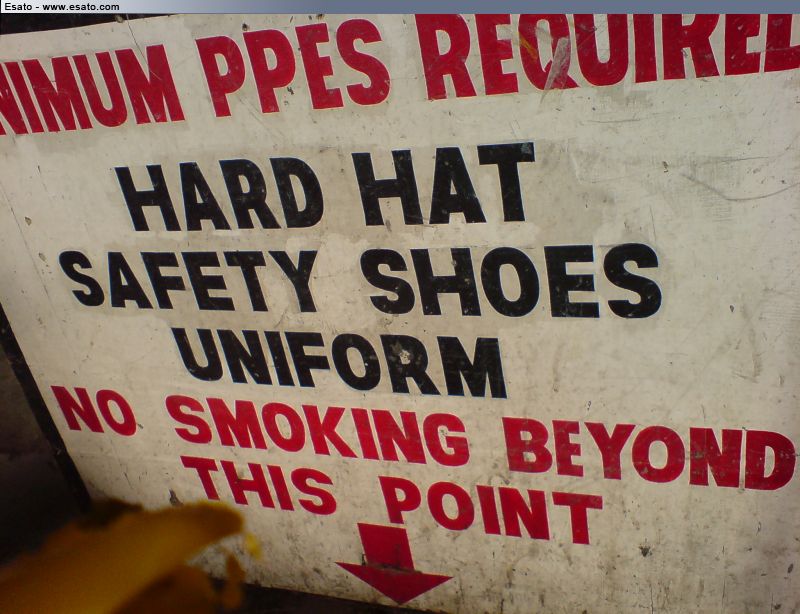 Esato - www.esato.com
NIMUM PPES REQUIRED
HARD HAT
SAFETY SHOES
UNIFORM
NO SMOKING BEYOND
THIS POINT